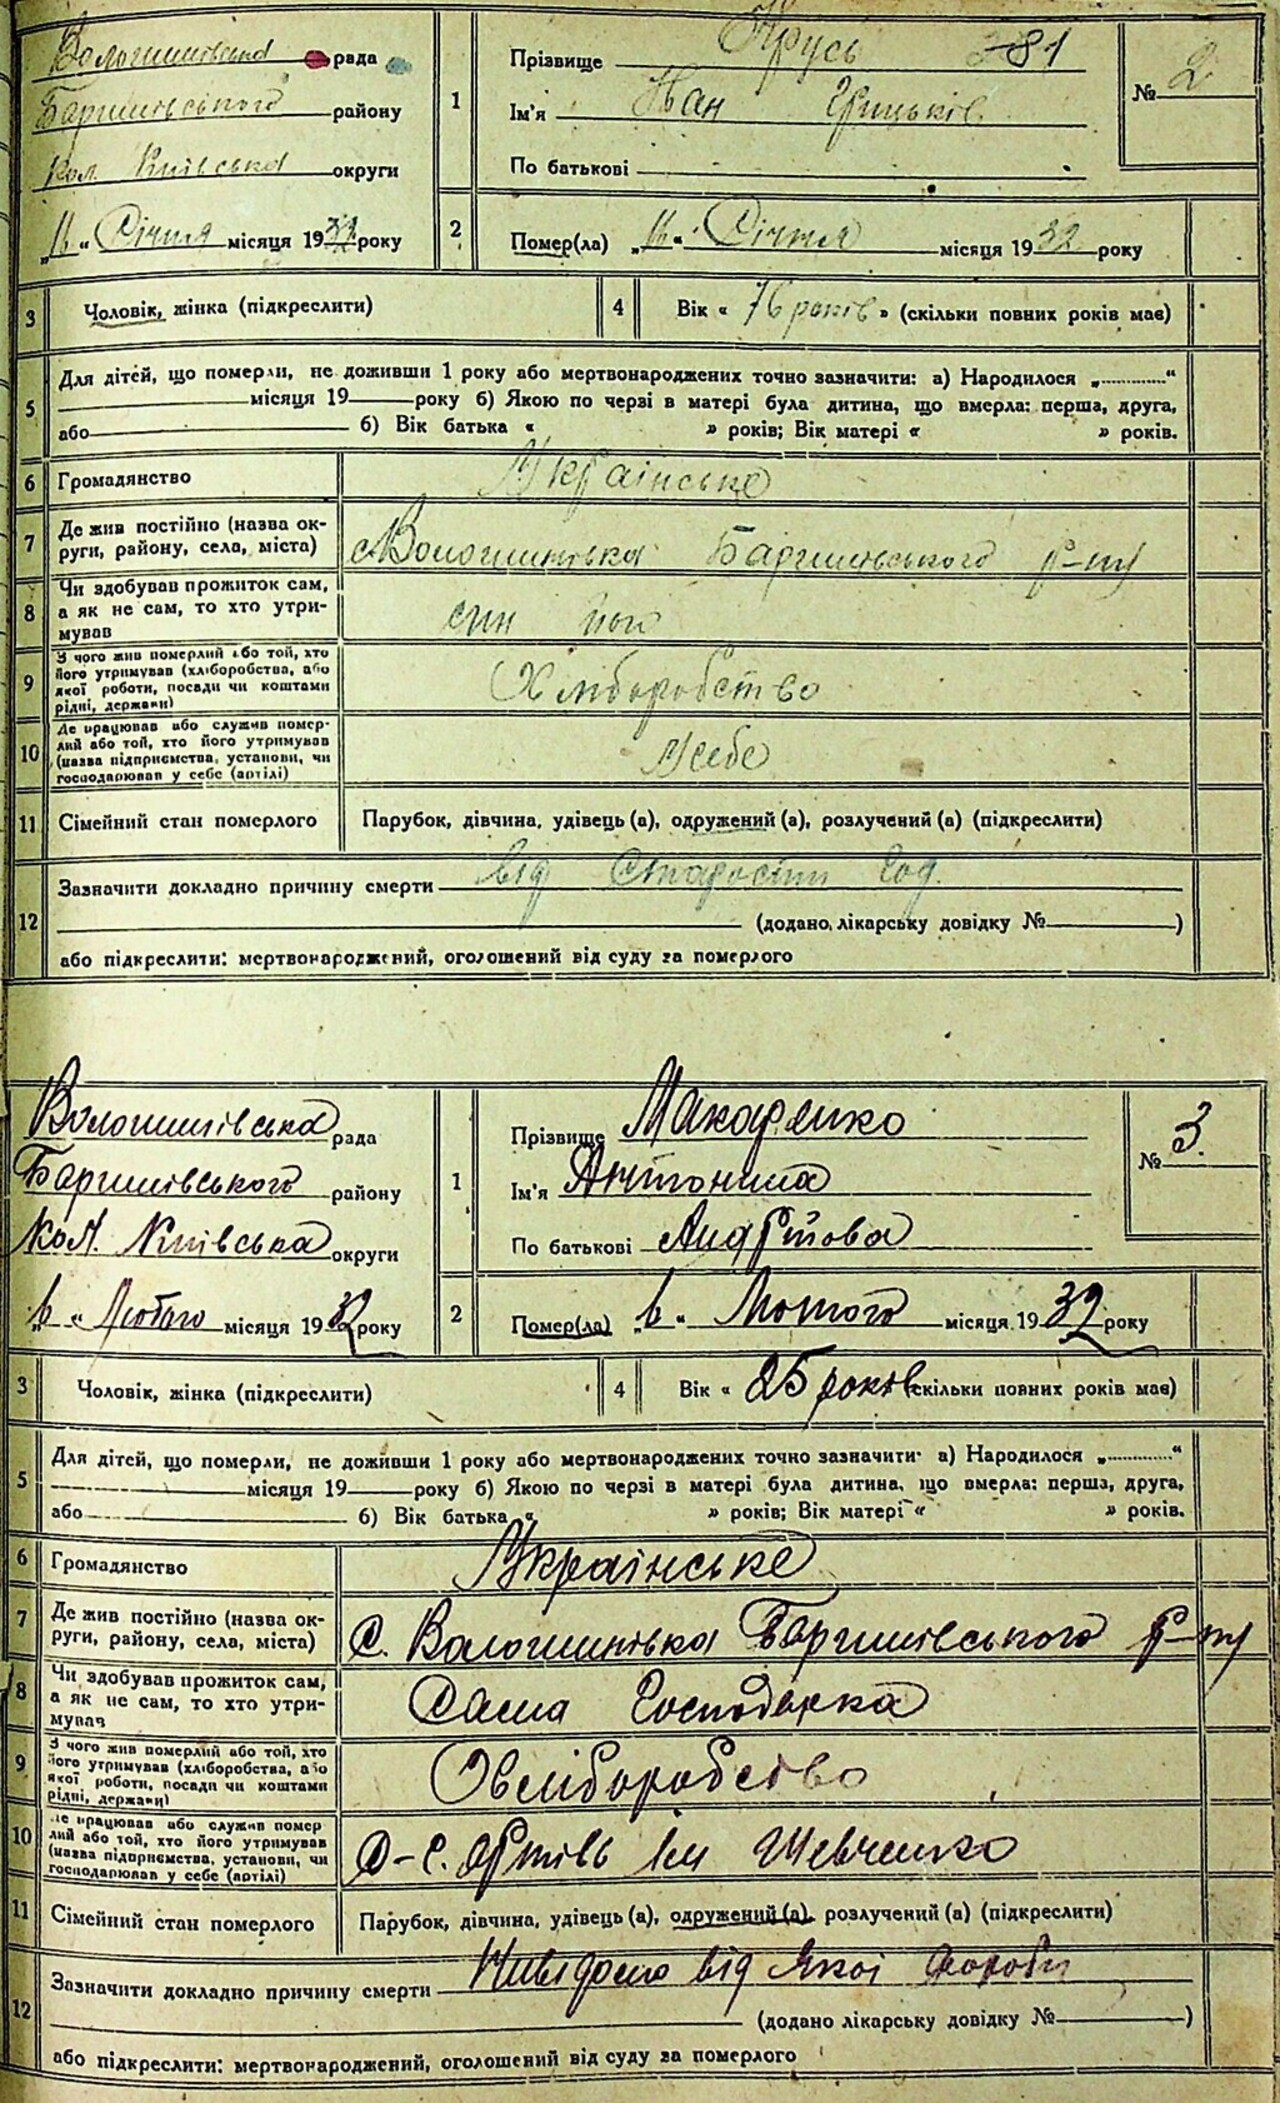 Вологшинівська рада
Баршивського району
Кол. Київська округи
„16“ Січня місяця 1932 року
1
Прізвище Крусь 81
Ім'я Іван Грицьків
По батькові
№ 2
2
Помер(ла) „16“ Січня місяця 1932 року
3
Чоловік, жінка (підкреслити)
4
Вік « 76 років » (скільки повних років має)
5
Для дітей, що померли, не доживши 1 року або мертвонароджених точно зазначити: а) Народилося „............“
місяця 19 року б) Якою по черзі в матері була дитина, що вмерла: перша, друга,
або б) Вік батька « » років; Вік матері « » років.
6
Громадянство
Українське
7
Де жив постійно (назва ок-
руги, району, села, міста)
с. р-ну
8
Чи здобував прожиток сам,
а як не сам, то хто утри-
мував
син його
9
З чого жив померлий або той, хто
його утримував (хліборобства, або
якої роботи, посади чи коштами
рідні, держави)
Хліборобство
10
Де працював або служив помер-
лий або той, хто його утримував
(назва підприємства, установи, чи
господарював у себе (артілі)
У себе
11
Сімейний стан померлого
Парубок, дівчина, удівець (а), одружений (а), розлучений (а) (підкреслити)
12
Зазначити докладно причину смерти від старости год.
(додано лікарську довідку № )
або підкреслити: мертвонароджений, оголошений від суду за померлого
рада
району
Кол. Київська округи
„6“ Лютого місяця 1932 року
1
Прізвище Макаренко
Ім'я Антонина
По батькові Андріїова
№ 3.
2
Помер(ла) „6“ Лютого місяця 1932 року
3
Чоловік, жінка (підкреслити)
4
Вік « 25 років скільки повних років має)
5
Для дітей, що померли, не доживши 1 року або мертвонароджених точно зазначити: а) Народилося „............“
місяця 19 року б) Якою по черзі в матері була дитина, що вмерла: перша, друга,
або б) Вік батька « » років; Вік матері « » років.
6
Громадянство
Українське
7
Де жив постійно (назва ок-
руги, району, села, міста)
с. р-ну
8
Чи здобував прожиток сам,
а як не сам, то хто утри-
мував
Сама Господарка
9
З чого жив померлий або той, хто
його утримував (хліборобства, або
якої роботи, посади чи коштами
рідні, держави)
Хліборобство
10
Де працював або служив помер
лий або той, хто його утримував
(назва підприємства, установи, чи
господарював у себе (артілі)
С-г. Артіль ім Шевченко
11
Сімейний стан померлого
Парубок, дівчина, удівець (а), одружений (а), розлучений (а) (підкреслити)
12
Зазначити докладно причину смерти Нивідомо від якої хороби
(додано лікарську довідку № )
або підкреслити: мертвонароджений, оголошений від суду за померлого